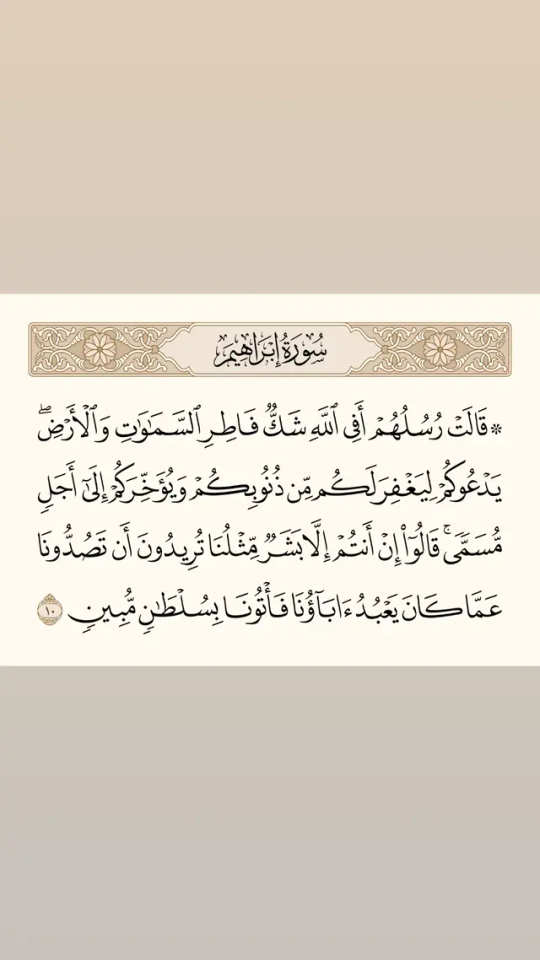 سُورَةُ إِبْرَاهِيمَ
۞ قَالَتْ رُسُلُهُمْ أَفِي ٱللَّهِ شَكٌّ فَاطِرِ ٱلسَّمَٰوَٰتِ وَٱلْأَرْضِۖ
يَدْعُوكُمْ لِيَغْفِرَ لَكُم مِّن ذُنُوبِكُمْ وَيُؤَخِّرَكُمْ إِلَىٰٓ أَجَلٍ
مُّسَمًّىۚ قَالُوٓا۟ إِنْ أَنتُمْ إِلَّا بَشَرٌ مِّثْلُنَا تُرِيدُونَ أَن تَصُدُّونَا
عَمَّا كَانَ يَعْبُدُ ءَابَآؤُنَا فَأْتُونَا بِسُلْطَٰنٍ مُّبِينٍ ١٠